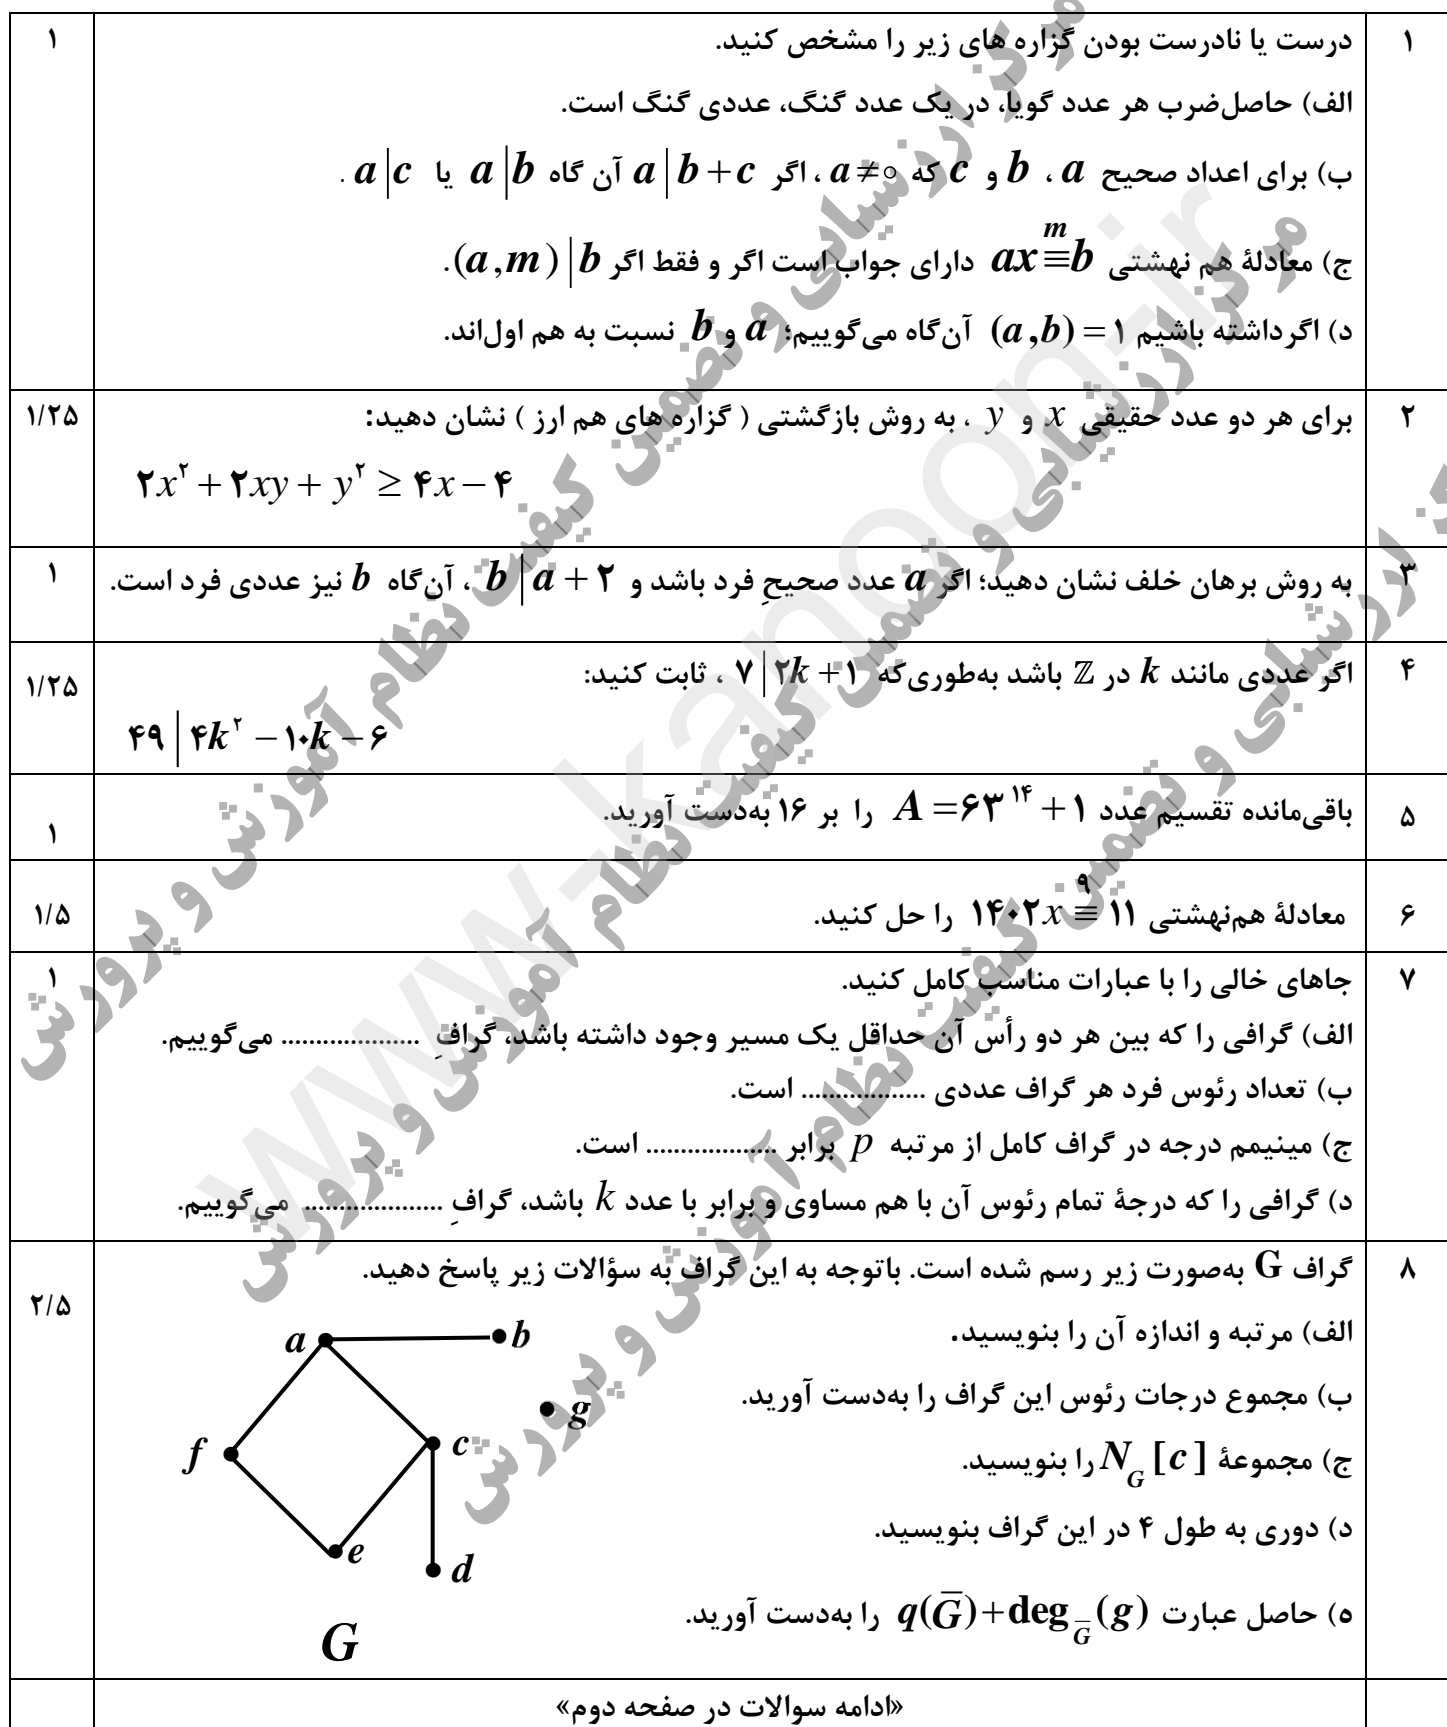 ۱ درست یا نادرست بودن گزاره های زیر را مشخص کنید. ۱
الف) حاصل‌ضرب هر عدد گویا، در یک عدد گنگ، عددی گنگ است.
ب) برای اعداد صحیح a ، b و c که a≠۰ ، اگر a|b+c آن گاه a|b یا a|c .
ج) معادلهٔ هم نهشتی ax ≡^m b دارای جواب است اگر و فقط اگر (a,m)|b.
د) اگرداشته باشیم (a,b)=۱ آن‌گاه می‌گوییم؛ a و b نسبت به هم اول‌اند.
۲ برای هر دو عدد حقیقی x و y ، به روش بازگشتی ( گزاره های هم ارز ) نشان دهید: ۱/۲۵
۲x^۲ + ۲xy + y^۲ ≥ ۴x − ۴
۳ به روش برهان خلف نشان دهید؛ اگر a عدد صحیحِ فرد باشد و b|a+۲ ، آن‌گاه b نیز عددی فرد است. ۱
۴ اگر عددی مانند k در ℤ باشد به‌طوری‌که ۷|۲k+۱ ، ثابت کنید: ۱/۲۵
۴۹|۴k^۲ − ۱۰k − ۶
۵ باقی‌مانده تقسیم عدد A=۶۳^۱۴+۱ را بر ۱۶ به‌دست آورید. ۱
۶ معادلهٔ هم‌نهشتی ۱۴۰۲x ≡^۹ ۱۱ را حل کنید. ۱/۵
۷ جاهای خالی را با عبارات مناسب کامل کنید. ۱
الف) گرافی را که بین هر دو رأس آن حداقل یک مسیر وجود داشته باشد، گرافِ .................... می‌گوییم.
ب) تعداد رئوس فرد هر گراف عددی .................. است.
ج) مینیمم درجه در گراف کامل از مرتبه p برابر ................... است.
د) گرافی را که درجهٔ تمام رئوس آن با هم مساوی و برابر با عدد k باشد، گرافِ .................... می‌گوییم.
۸ گراف G به‌صورت زیر رسم شده است. باتوجه به این گراف به سؤالات زیر پاسخ دهید. ۲/۵
الف) مرتبه و اندازه آن را بنویسید.
ب) مجموع درجات رئوس این گراف را به‌دست آورید.
ج) مجموعهٔ N_G[c] را بنویسید.
د) دوری به طول ۴ در این گراف بنویسید.
ه) حاصل عبارت q(G̅)+deg_G̅(g) را به‌دست آورید.
a b
g
f c
e d
G
«ادامه سوالات در صفحه دوم»
مرکز ارزشیابی و تضمین کیفیت نظام آموزش و پرورش
مرکز ارزشیابی و تضمین کیفیت نظام آموزش و پرورش
مرکز ارزشیابی و تضمین کیفیت نظام آموزش و پرورش